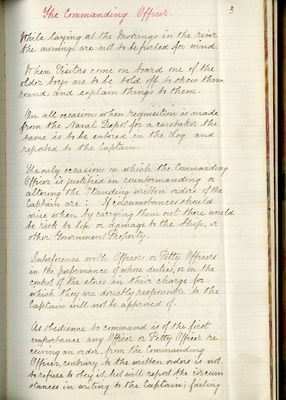 The Commanding Officer. 3
While laying at the Moorings in the river
the awnings are not to be furled for wind.
When Visitors come on board one of the
older boys are to be told off to show them
round, and explain things to them.
On all occasions when requisition is made
from the Naval Depot for a caretaker the
same is to be entered in the Log and
reported to the Captain.
The only occasions on which the Commanding
Officer is justified in countermanding or
altering the Standing written orders of the
Captain are: If circumstances should
arise when by carrying them out there would
be risk to life or damage to the Ship, or
other Government Property.
Interference with Officers or Petty Officers
in the performance of whose duties, or in the
control of the stores in their charge for
which they are directly responsible to the
Captain will not be approved of.
As obedience to command is of the first
importance any Officer or Petty Officer re
ceiving an order from the Commanding
Officer, contrary to the written orders is not
to refuse to obey it, but will report the circum
stances in writing to the Captain; failing